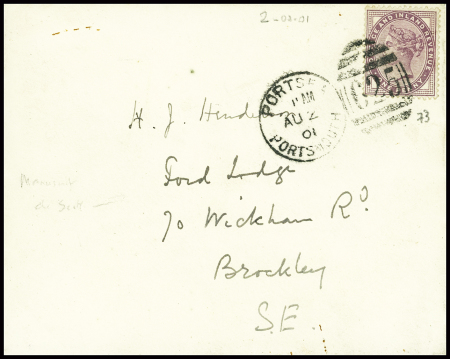 2-08-01
POSTAGE AND INLAND REVENUE
PORTSEA
AU 2
01
PORTSMOUTH
C25
73
H. J. Hinde
Ford Lodge
70 Wickham Rd
Brockley
S.E.